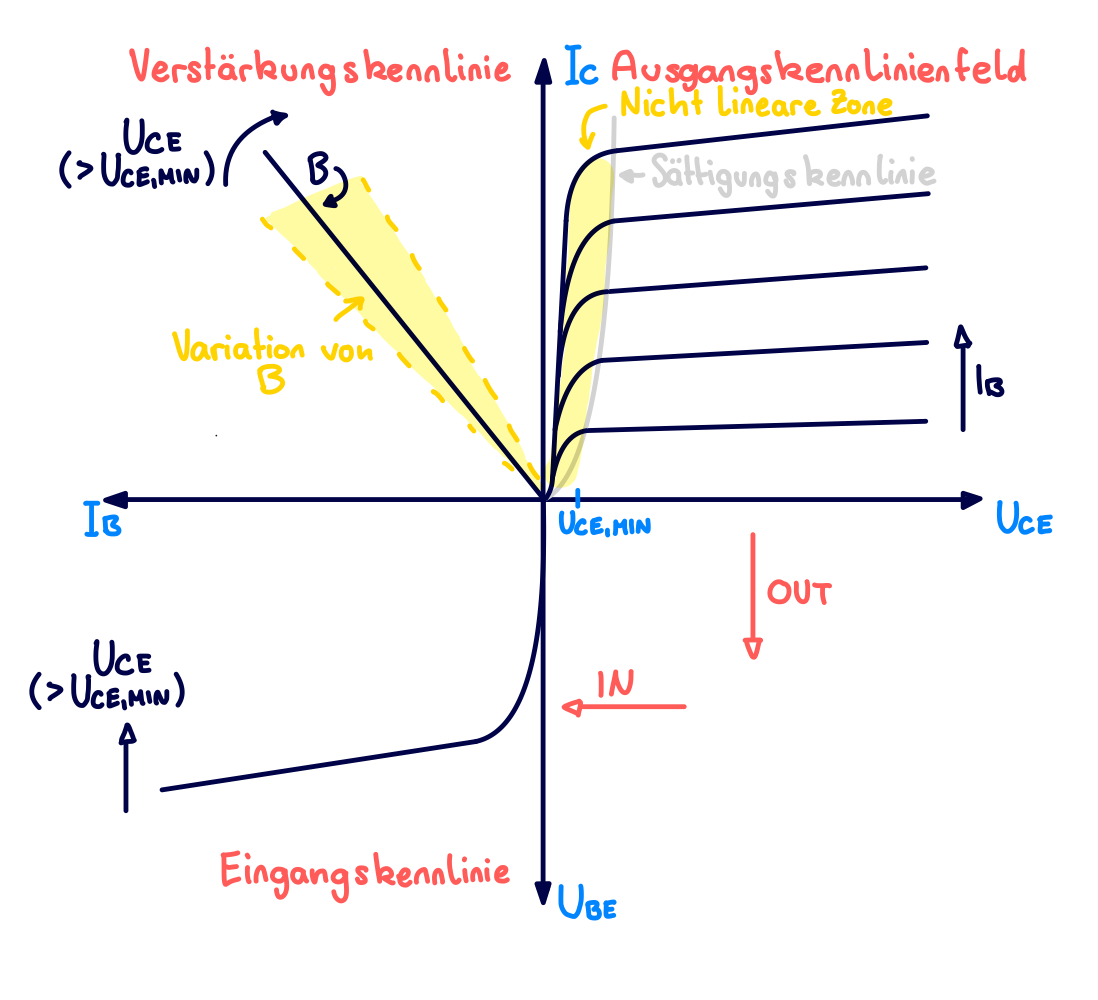 Verstärkungskennlinie
IC
Ausgangskennlinienfeld
Nicht lineare Zone
UCE
(>UCE,MIN)
B
Sättigungskennlinie
Variation von
B
IB
IB
UCE,MIN
UCE
OUT
IN
UCE
(>UCE,MIN)
Eingangskennlinie
UBE